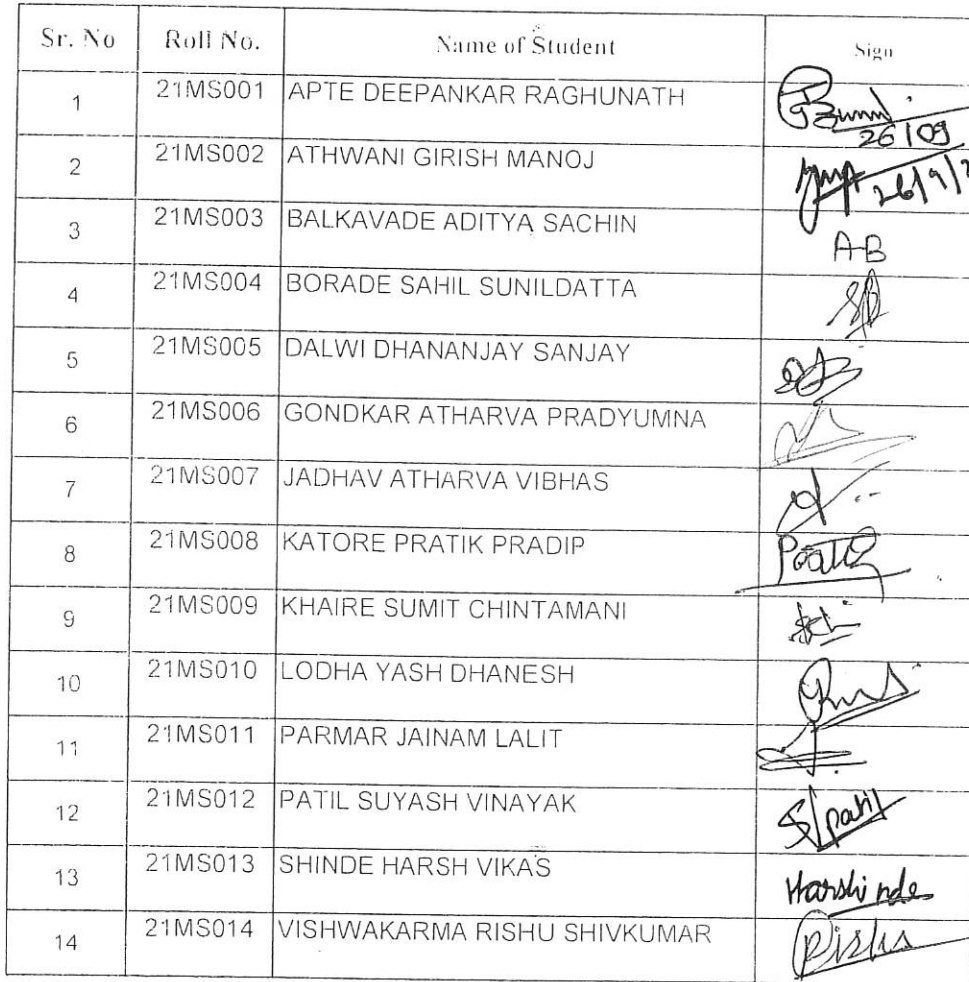 Sr. No Roll No. Name of Student Sign
1 21MS001 APTE DEEPANKAR RAGHUNATH 26/09
2 21MS002 ATHWANI GIRISH MANOJ 26/9/2
3 21MS003 BALKAVADE ADITYA SACHIN A-B
4 21MS004 BORADE SAHIL SUNILDATTA SB
5 21MS005 DALWI DHANANJAY SANJAY
6 21MS006 GONDKAR ATHARVA PRADYUMNA
7 21MS007 JADHAV ATHARVA VIBHAS
8 21MS008 KATORE PRATIK PRADIP
9 21MS009 KHAIRE SUMIT CHINTAMANI
10 21MS010 LODHA YASH DHANESH
11 21MS011 PARMAR JAINAM LALIT
12 21MS012 PATIL SUYASH VINAYAK S patil
13 21MS013 SHINDE HARSH VIKAS Harshinde
14 21MS014 VISHWAKARMA RISHU SHIVKUMAR Rishu